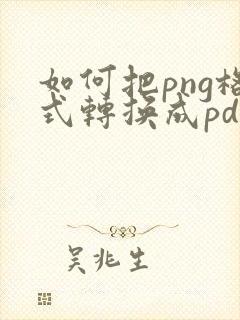 如何把png格
式轉換成pd
吳兆生